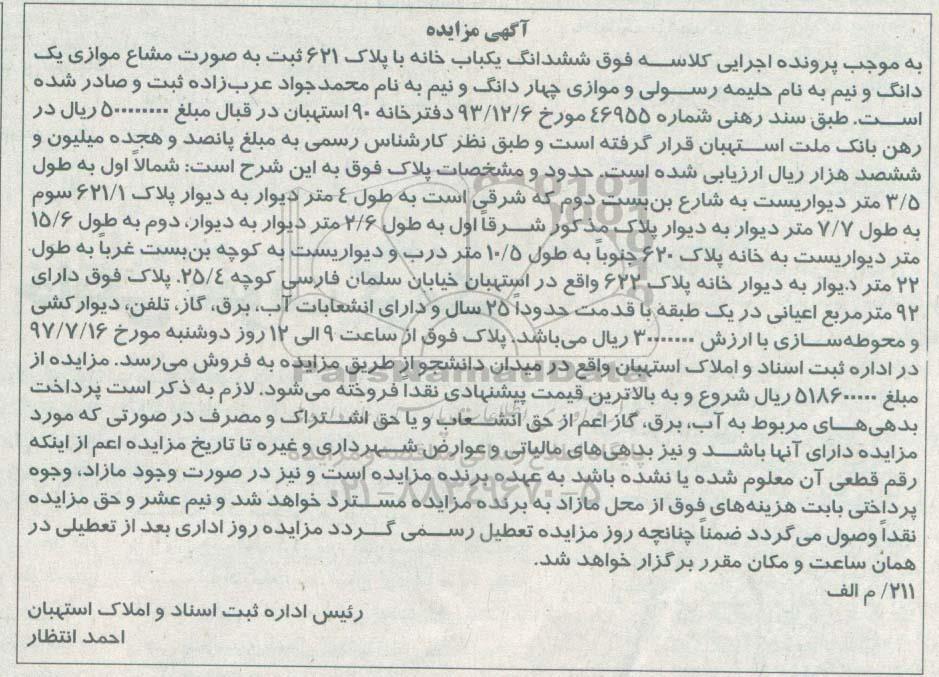 آگهی مزایده
به موجب پرونده اجرایی کلاسه فوق ششدانگ یکباب خانه با پلاک ۶۲۱ ثبت به صورت مشاع موازی یک
دانگ و نیم به نام حلیمه رسولی و موازی چهار دانگ و نیم به نام محمدجواد عرب‌زاده ثبت و صادر شده
است. طبق سند رهنی شماره ۴۶۹۵۵ مورخ ۹۳/۱۲/۶ دفترخانه ۹۰ استهبان در قبال مبلغ ۵۰۰۰۰۰۰۰۰ ریال در
رهن بانک ملت استهبان قرار گرفته است و طبق نظر کارشناس رسمی به مبلغ پانصد و هجده میلیون و
ششصد هزار ریال ارزیابی شده است. حدود و مشخصات پلاک فوق به این شرح است: شمالاً اول به طول
۳/۵ متر دیواریست به شارع بن‌بست دوم که شرقی است به طول ۴ متر دیوار به دیوار پلاک ۶۲۱/۱ سوم
به طول ۷/۷ متر دیوار به دیوار پلاک مذکور شرقاً اول به طول ۲/۶ متر دیوار به دیوار، دوم به طول ۱۵/۶
متر دیواریست به خانه پلاک ۶۲۰ جنوباً به طول ۱۰/۵ متر درب و دیواریست به کوچه بن‌بست غرباً به طول
۲۲ متر دیوار به دیوار خانه پلاک ۶۲۲ واقع در استهبان خیابان سلمان فارسی کوچه ۲۵/۴. پلاک فوق دارای
۹۲ مترمربع اعیانی در یک طبقه با قدمت حدوداً ۲۵ سال و دارای انشعابات آب، برق، گاز، تلفن، دیوارکشی
و محوطه‌سازی با ارزش ۳۰۰۰۰۰۰۰ ریال می‌باشد. پلاک فوق از ساعت ۹ الی ۱۲ روز دوشنبه مورخ ۹۷/۷/۱۶
در اداره ثبت اسناد و املاک استهبان واقع در میدان دانشجو از طریق مزایده به فروش می‌رسد. مزایده از
مبلغ ۵۱۸۶۰۰۰۰۰ ریال شروع و به بالاترین قیمت پیشنهادی نقداً فروخته می‌شود. لازم به ذکر است پرداخت
بدهی‌های مربوط به آب، برق، گاز اعم از حق انشعاب و یا حق اشتراک و مصرف در صورتی که مورد
مزایده دارای آنها باشد و نیز بدهی‌های مالیاتی و عوارض شهرداری و غیره تا تاریخ مزایده اعم از اینکه
رقم قطعی آن معلوم شده یا نشده باشد به عهده برنده مزایده است و نیز در صورت وجود مازاد، وجوه
پرداختی بابت هزینه‌های فوق از محل مازاد به برنده مزایده مسترد خواهد شد و نیم عشر و حق مزایده
نقداً وصول می‌گردد ضمناً چنانچه روز مزایده تعطیل رسمی گردد مزایده روز اداری بعد از تعطیلی در
همان ساعت و مکان مقرر برگزار خواهد شد.
۲۱۱/ م الف
رئیس اداره ثبت اسناد و املاک استهبان
احمد انتظار
ParsNamadData
۰۲۱-۸۸۳۴۹۶۷۰-۵